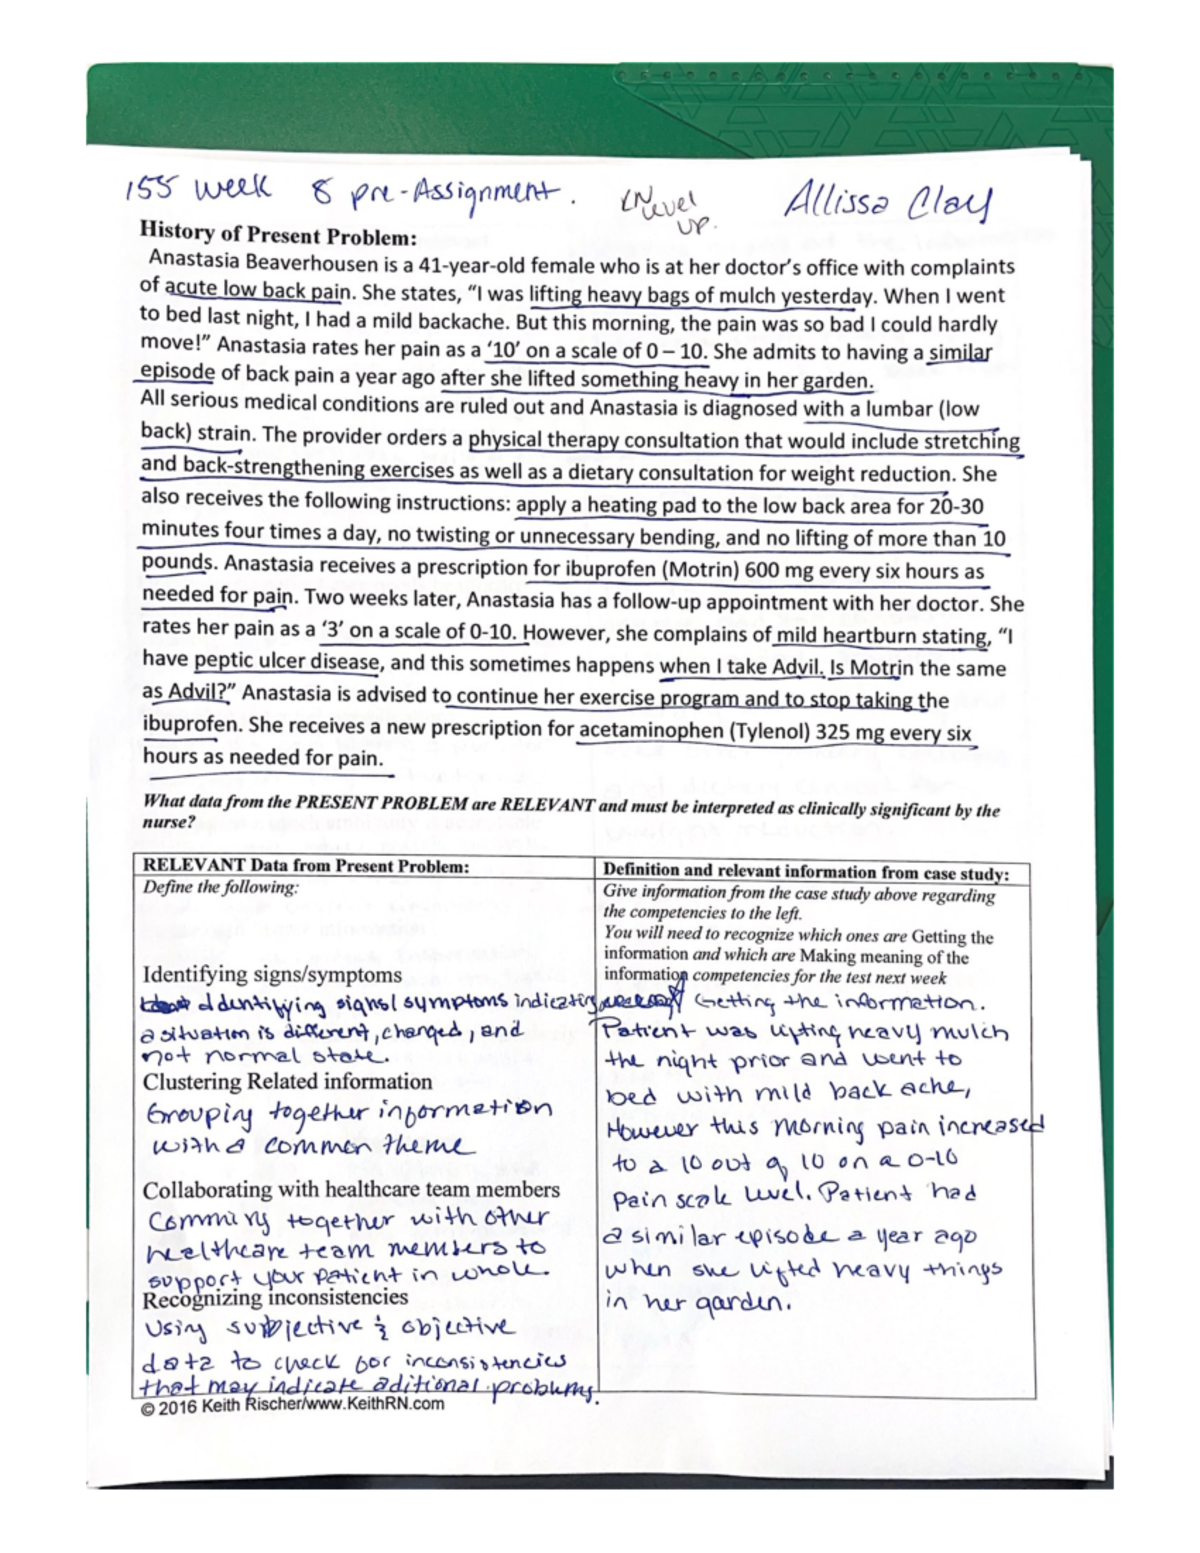 155 week 8 pre-Assignment.
LN level up.
Allissa Clay
History of Present Problem:
Anastasia Beaverhousen is a 41-year-old female who is at her doctor's office with complaints
of acute low back pain. She states, "I was lifting heavy bags of mulch yesterday. When I went
to bed last night, I had a mild backache. But this morning, the pain was so bad I could hardly
move!" Anastasia rates her pain as a '10' on a scale of 0 – 10. She admits to having a similar
episode of back pain a year ago after she lifted something heavy in her garden.
All serious medical conditions are ruled out and Anastasia is diagnosed with a lumbar (low
back) strain. The provider orders a physical therapy consultation that would include stretching
and back-strengthening exercises as well as a dietary consultation for weight reduction. She
also receives the following instructions: apply a heating pad to the low back area for 20-30
minutes four times a day, no twisting or unnecessary bending, and no lifting of more than 10
pounds. Anastasia receives a prescription for ibuprofen (Motrin) 600 mg every six hours as
needed for pain. Two weeks later, Anastasia has a follow-up appointment with her doctor. She
rates her pain as a '3' on a scale of 0-10. However, she complains of mild heartburn stating, "I
have peptic ulcer disease, and this sometimes happens when I take Advil. Is Motrin the same
as Advil?" Anastasia is advised to continue her exercise program and to stop taking the
ibuprofen. She receives a new prescription for acetaminophen (Tylenol) 325 mg every six
hours as needed for pain.
What data from the PRESENT PROBLEM are RELEVANT and must be interpreted as clinically significant by the
nurse?
RELEVANT Data from Present Problem:
Define the following:
Identifying signs/symptoms
Identifying signs/symptoms indicating
a situation is different, changed, and
not normal state.
Clustering Related information
Grouping together information
with a common theme
Collaborating with healthcare team members
Comming together with other
healthcare team members to
support your patient in whole.
Recognizing inconsistencies
Using subjective & objective
data to check for inconsistencies
that may indicate aditional problems.
Definition and relevant information from case study:
Give information from the case study above regarding
the competencies to the left.
You will need to recognize which ones are Getting the
information and which are Making meaning of the
information competencies for the test next week
Getting the information.
Patient was lifting heavy mulch
the night prior and went to
bed with mild back ache,
However this morning pain increased
to a 10 out of 10 on a 0-10
pain scale level. Patient had
a similar episode a year ago
when she lifted heavy things
in her garden.
© 2016 Keith Rischer/www.KeithRN.com